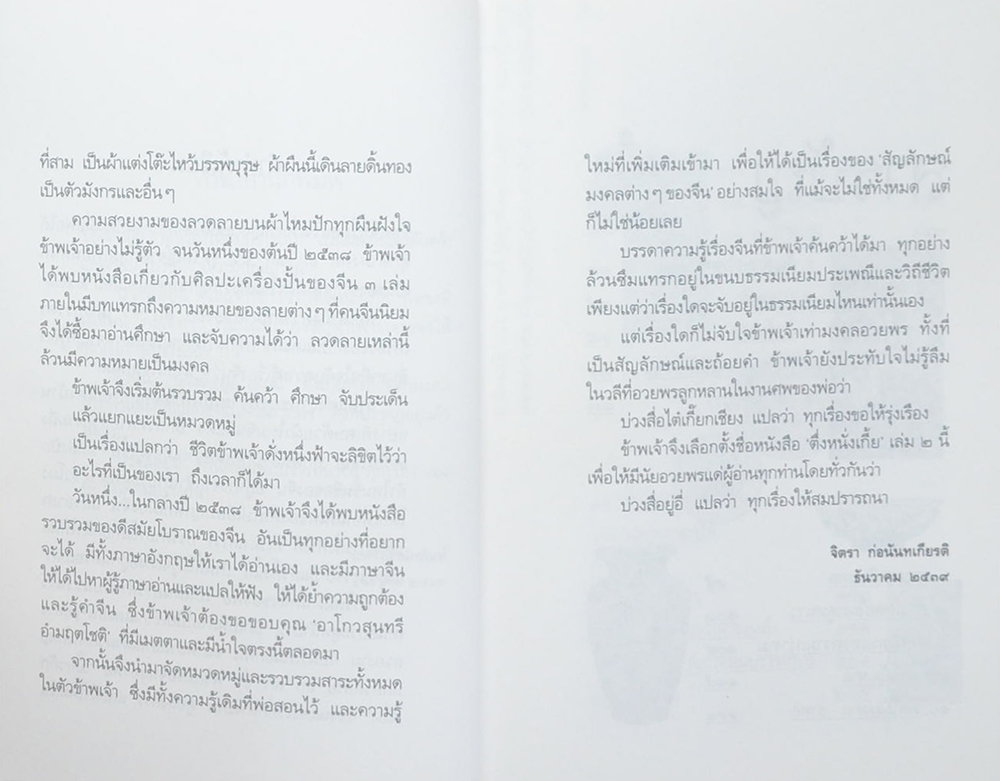 ที่สาม เป็นผ้าแต่งโต๊ะไหว้บรรพบุรุษ ผ้าผืนนี้เดินลายดิ้นทอง
เป็นตัวมังกรและอื่นๆ
ความสวยงามของลวดลายบนผ้าไหมปักทุกผืนฝังใจ
ข้าพเจ้าอย่างไม่รู้ตัว จนวันหนึ่งของต้นปี ๒๕๓๘ ข้าพเจ้า
ได้พบหนังสือเกี่ยวกับศิลปะเครื่องปั้นของจีน ๓ เล่ม
ภายในมีบทแทรกถึงความหมายของลายต่างๆ ที่คนจีนนิยม
จึงได้ซื้อมาอ่านศึกษา และจับความได้ว่า ลวดลายเหล่านี้
ล้วนมีความหมายเป็นมงคล
ข้าพเจ้าจึงเริ่มต้นรวบรวม ค้นคว้า ศึกษา จับประเด็น
แล้วแยกแยะเป็นหมวดหมู่
เป็นเรื่องแปลกว่า ชีวิตข้าพเจ้าดั่งหนึ่งฟ้าจะลิขิตไว้ว่า
อะไรที่เป็นของเรา ถึงเวลาก็ได้มา
วันหนึ่ง...ในกลางปี ๒๕๓๘ ข้าพเจ้าจึงได้พบหนังสือ
รวบรวมของดีสมัยโบราณของจีน อันเป็นทุกอย่างที่อยาก
จะได้ มีทั้งภาษาอังกฤษให้เราได้อ่านเอง และมีภาษาจีน
ให้ได้ไปหาผู้รู้ภาษาอ่านและแปลให้ฟัง ให้ได้ย้ำความถูกต้อง
และรู้คำจีน ซึ่งข้าพเจ้าต้องขอขอบคุณ 'อาโกวสุนทรี
อำมฤตโชติ' ที่มีเมตตาและมีน้ำใจตรงนี้ตลอดมา
จากนั้นจึงนำมาจัดหมวดหมู่และรวบรวมสาระทั้งหมด
ในตัวข้าพเจ้า ซึ่งมีทั้งความรู้เดิมที่พ่อสอนไว้ และความรู้
ใหม่ที่เพิ่มเติมเข้ามา เพื่อให้ได้เป็นเรื่องของ 'สัญลักษณ์
มงคลต่างๆ ของจีน' อย่างสมใจ ที่แม้จะไม่ใช่ทั้งหมด แต่
ก็ไม่ใช่น้อยเลย
บรรดาความรู้เรื่องจีนที่ข้าพเจ้าค้นคว้าได้มา ทุกอย่าง
ล้วนซึมแทรกอยู่ในขนบธรรมเนียมประเพณีและวิถีชีวิต
เพียงแต่ว่าเรื่องใดจะจับอยู่ในธรรมเนียมไหนเท่านั้นเอง
แต่เรื่องใดก็ไม่จับใจข้าพเจ้าเท่ามงคลอวยพร ทั้งที่
เป็นสัญลักษณ์และถ้อยคำ ข้าพเจ้ายังประทับใจไม่รู้ลืม
ในวลีที่อวยพรลูกหลานในงานศพของพ่อว่า
บ่วงสื่อไต๋เกี๊ยกเชียง แปลว่า ทุกเรื่องขอให้รุ่งเรือง
ข้าพเจ้าจึงเลือกตั้งชื่อหนังสือ 'ตึ่งหนั่งเกี้ย' เล่ม ๒ นี้
เพื่อให้มีนัยอวยพรแด่ผู้อ่านทุกท่านโดยทั่วกันว่า
บ่วงสื่อยู่อี่ แปลว่า ทุกเรื่องให้สมปรารถนา
จิตรา ก่อนันทเกียรติ
ธันวาคม ๒๕๓๙